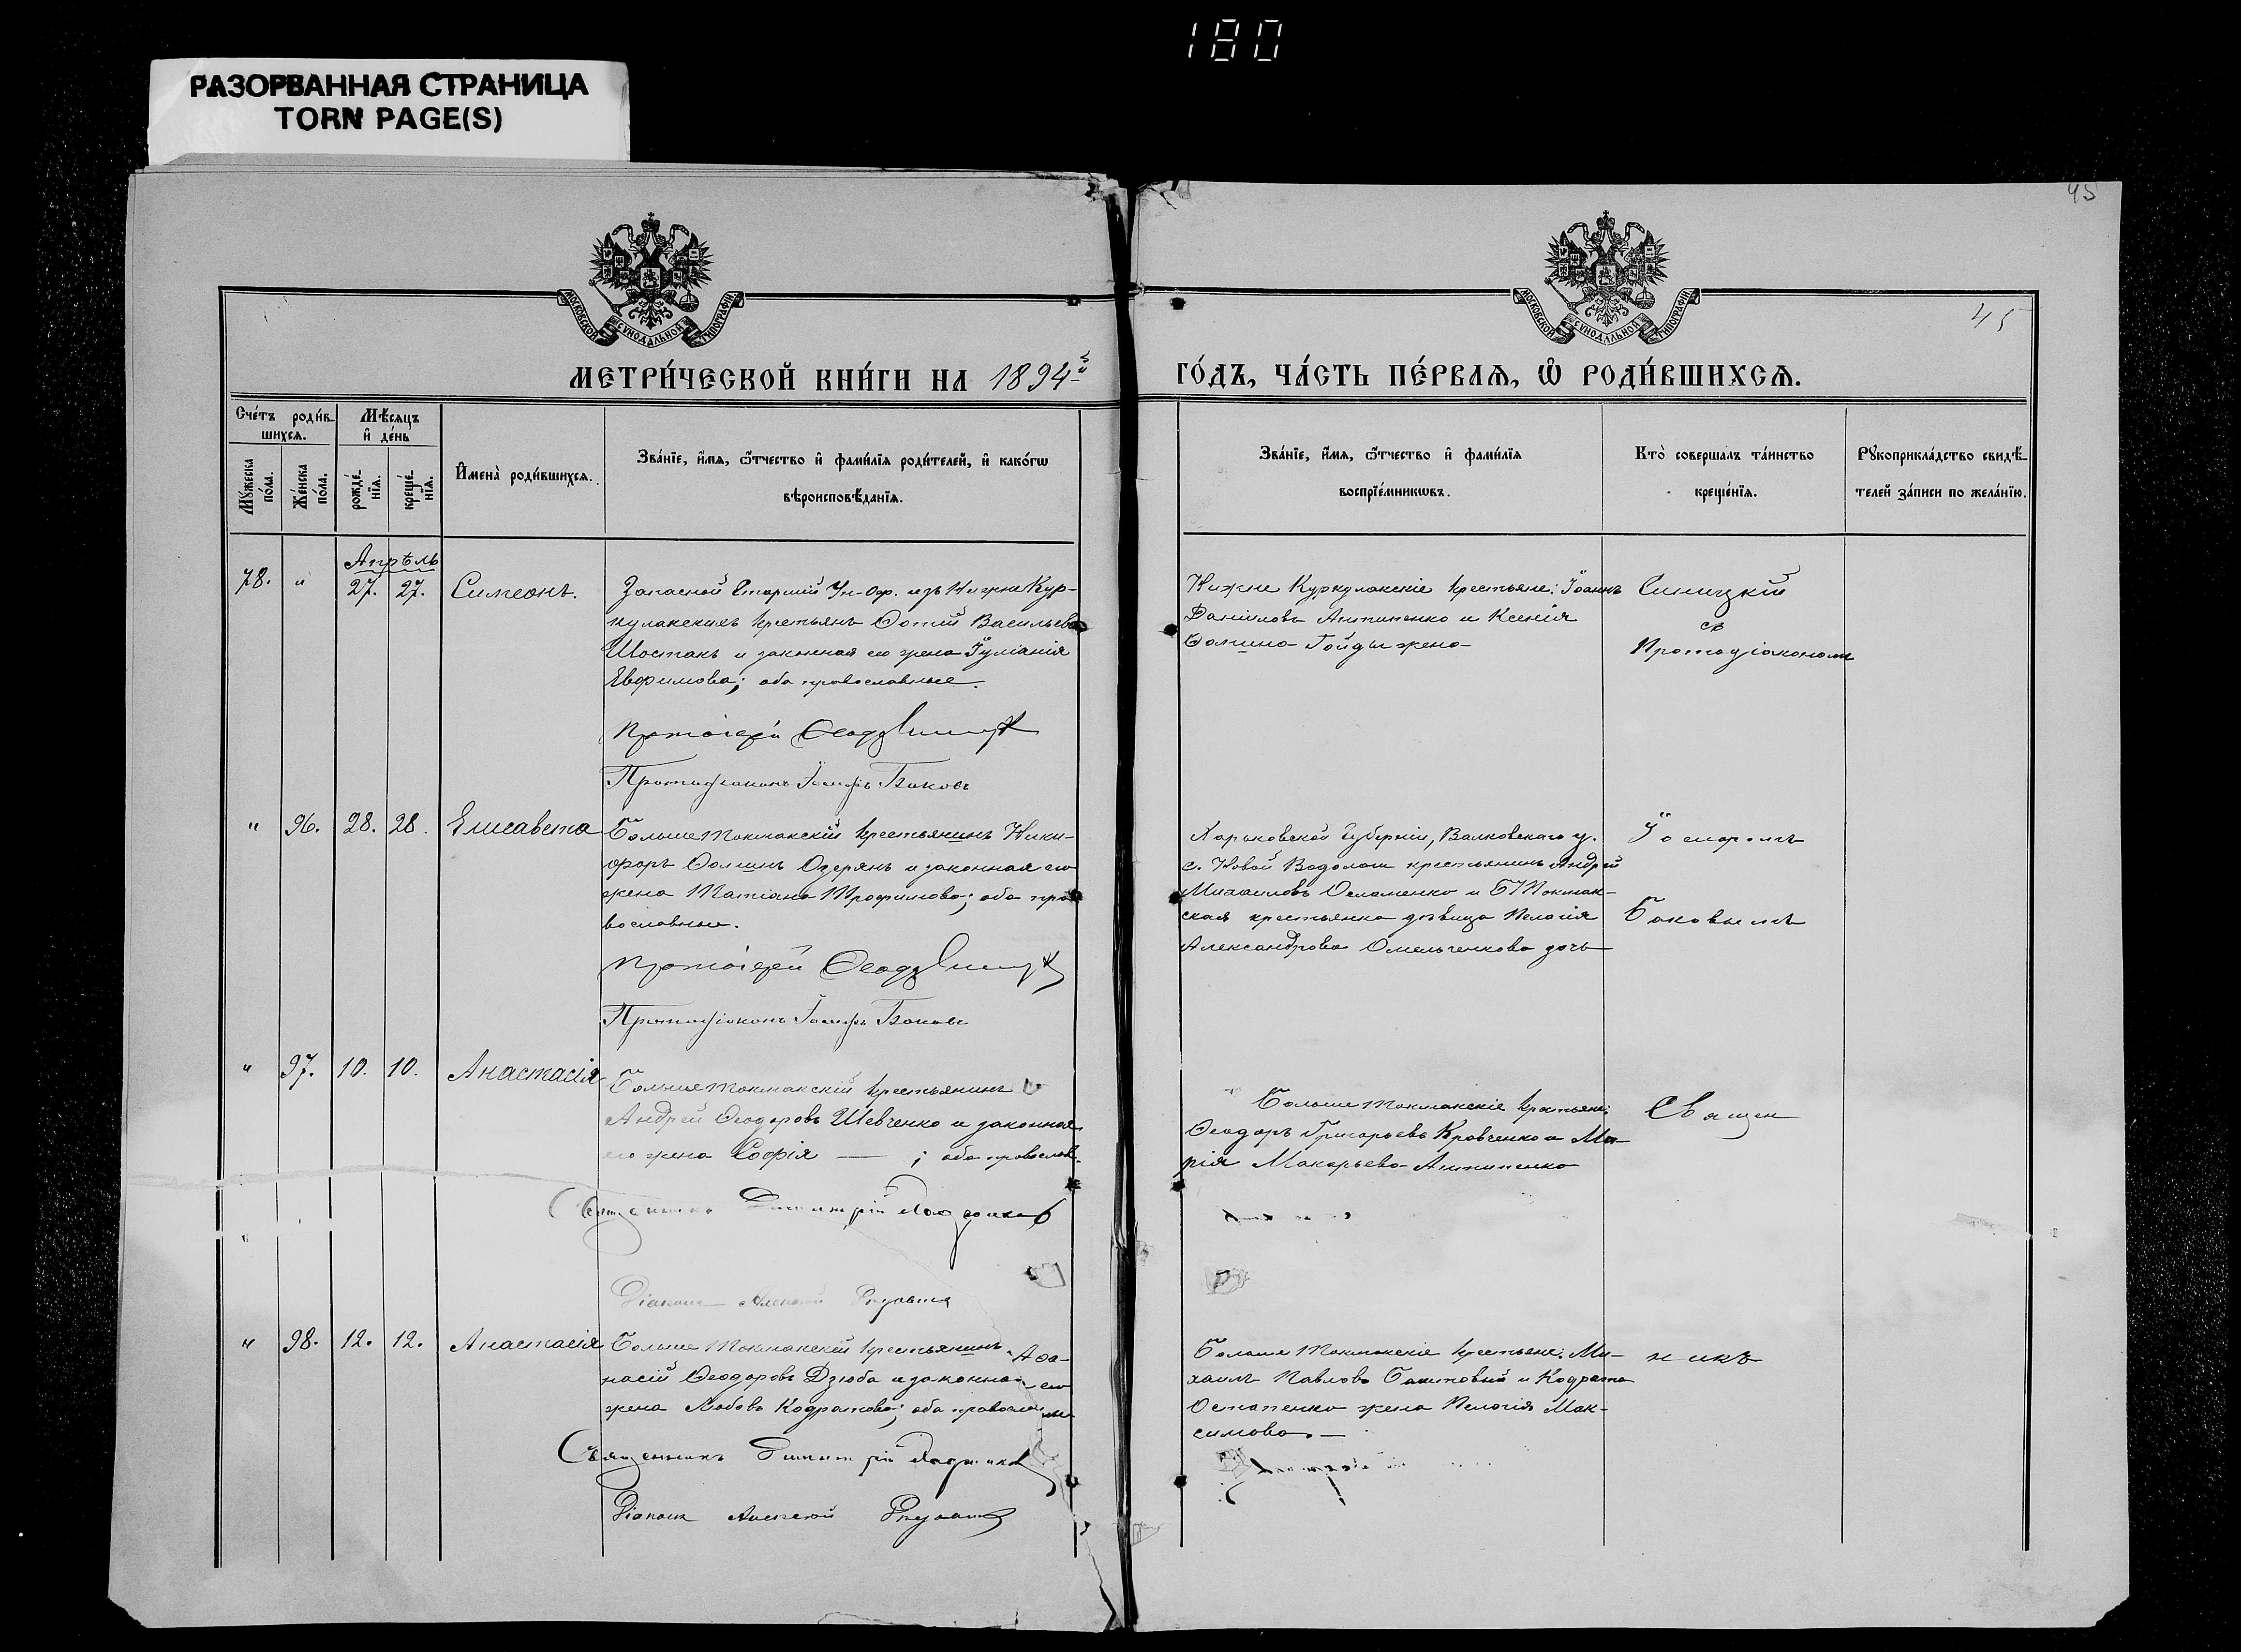 180
РАЗОРВАННАЯ СТРАНИЦА
TORN PAGE(S)
45
МОСКОВСКОЙ СѴНОДАЛЬНОЙ ТИПОГРАФІИ
МОСКОВСКОЙ СѴНОДАЛЬНОЙ ТИПОГРАФІИ
45
МЕТРИ́ЧЕСКОЙ КНИ́ГИ НА 1894й
ГО́ДЪ, ЧА́СТЬ ПЕ́РВАѦ, Ѡ҆ РОДИ́ВШИХСѦ.
Сче́тъ роди́в-
шихсѧ.
Мꙋ́жеска
по́ла.
Же́нска
по́ла.
Мѣ́сѧцъ
и҆ де́нь
рожде́-
нїѧ.
креще́-
нїѧ.
И҆мена̀ роди́вшихсѧ.
Зва́нїе, и҆́мѧ, ѻ҆́тчество и҆ фами́лїѧ роди́телей, и҆ како́гѡ
вѣроисповѣ́данїѧ.
Зва́нїе, и҆́мѧ, ѻ҆́тчество и҆ фами́лїѧ
воспрїе́мникѡвъ.
Кто̀ соверша́лъ та́инство
креще́нїѧ.
Рꙋкоприкла́дство свидѣ́-
телей за́писи по жела́нїю.
Апрѣль
78. " 27. 27. Симеонъ.
Запасной Старшій Ун-Оф. изъ Нижне Кур-
кулакскихъ крестьянъ Фотій Васильевъ
Шостакъ и законная его жена Іуліанія
Евфимова; оба православные.
Протоіерей Ѳеод
Протодіаконъ Іосифъ Баковъ
Нижне Куркулакскіе крестьяне: Іоаннъ
Даніиловъ Антипенко и Ксенія
Фомина Гойды жена
Синицкій
съ
Протодіакономъ
" 96. 28. 28. Елисавета
Больше Токмакскій крестьянинъ Ники-
форъ Фоминъ Озерянъ и законная его
жена Татіана Трофимова; оба пра
вославные.
Протоіерей Ѳеод
Протодіаконъ Іосифъ Баковъ
Харьковской губерніи, Валковскаго у.
с. Новой Водолаги крестьянинъ Андрей
Михаиловъ и Б Токмак-
ская крестьянка дѣвица Пелагія
Александрова Омельченкова дочь
Іосифомъ
Баковымъ
" 97. 10. 10. Анастасія
Больше Токмакскій крестьянинъ
Андрей Ѳеодоровъ Шевченко и законная
его жена Софія — ; оба православ.
Священникъ Димитрій
Діаконъ Алексій
Больше Токмакскіе крестьяне:
Ѳеодоръ Григорьевъ Кравченко и Ма-
рія Макарьева Антипенко
Священ
"
" 98. 12. 12. Анастасія
Больше Токмакскій крестьянинъ Аѳа-
насій Ѳеодоровъ Дзюба и законная его
жена Любовь Кодратова; оба православные
Священникъ Димитрій
Діаконъ Алексій
Больше Токмакскіе крестьяне: Ми-
хаилъ Павловъ и Кодрата
Остапенко жена Пелагія Мак-
симова.—
никъ